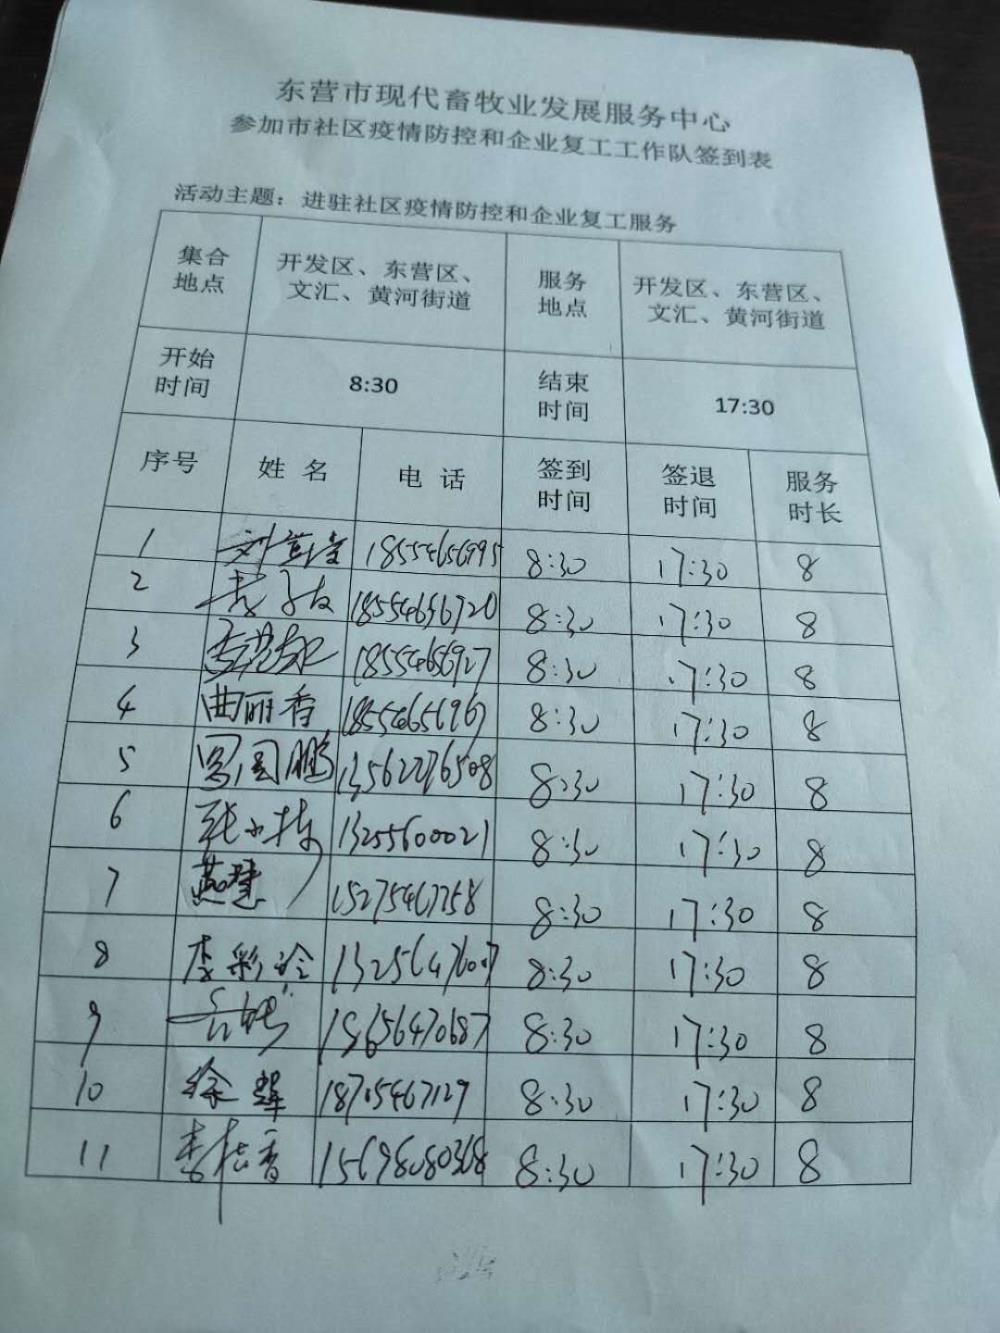 东营市现代畜牧业发展服务中心
参加市社区疫情防控和企业复工工作队签到表
活动主题：进驻社区疫情防控和企业复工服务
集合地点 开发区、东营区、文汇、黄河街道 服务地点 开发区、东营区、文汇、黄河街道
开始时间 8:30 结束时间 17:30
序号 姓名 电话 签到时间 签退时间 服务时长
1 18554656995 8:30 17:30 8
2 18554656920 8:30 17:30 8
3 18554656927 8:30 17:30 8
4 曲丽香 18554656967 8:30 17:30 8
5 13562276508 8:30 17:30 8
6 张小栋 13255600021 8:30 17:30 8
7 燕慧 15275467258 8:30 17:30 8
8 李彩玲 8:30 17:30 8
9 15656470687 8:30 17:30 8
10 徐翠 18705467129 8:30 17:30 8
11 李桂香 15698080368 8:30 17:30 8